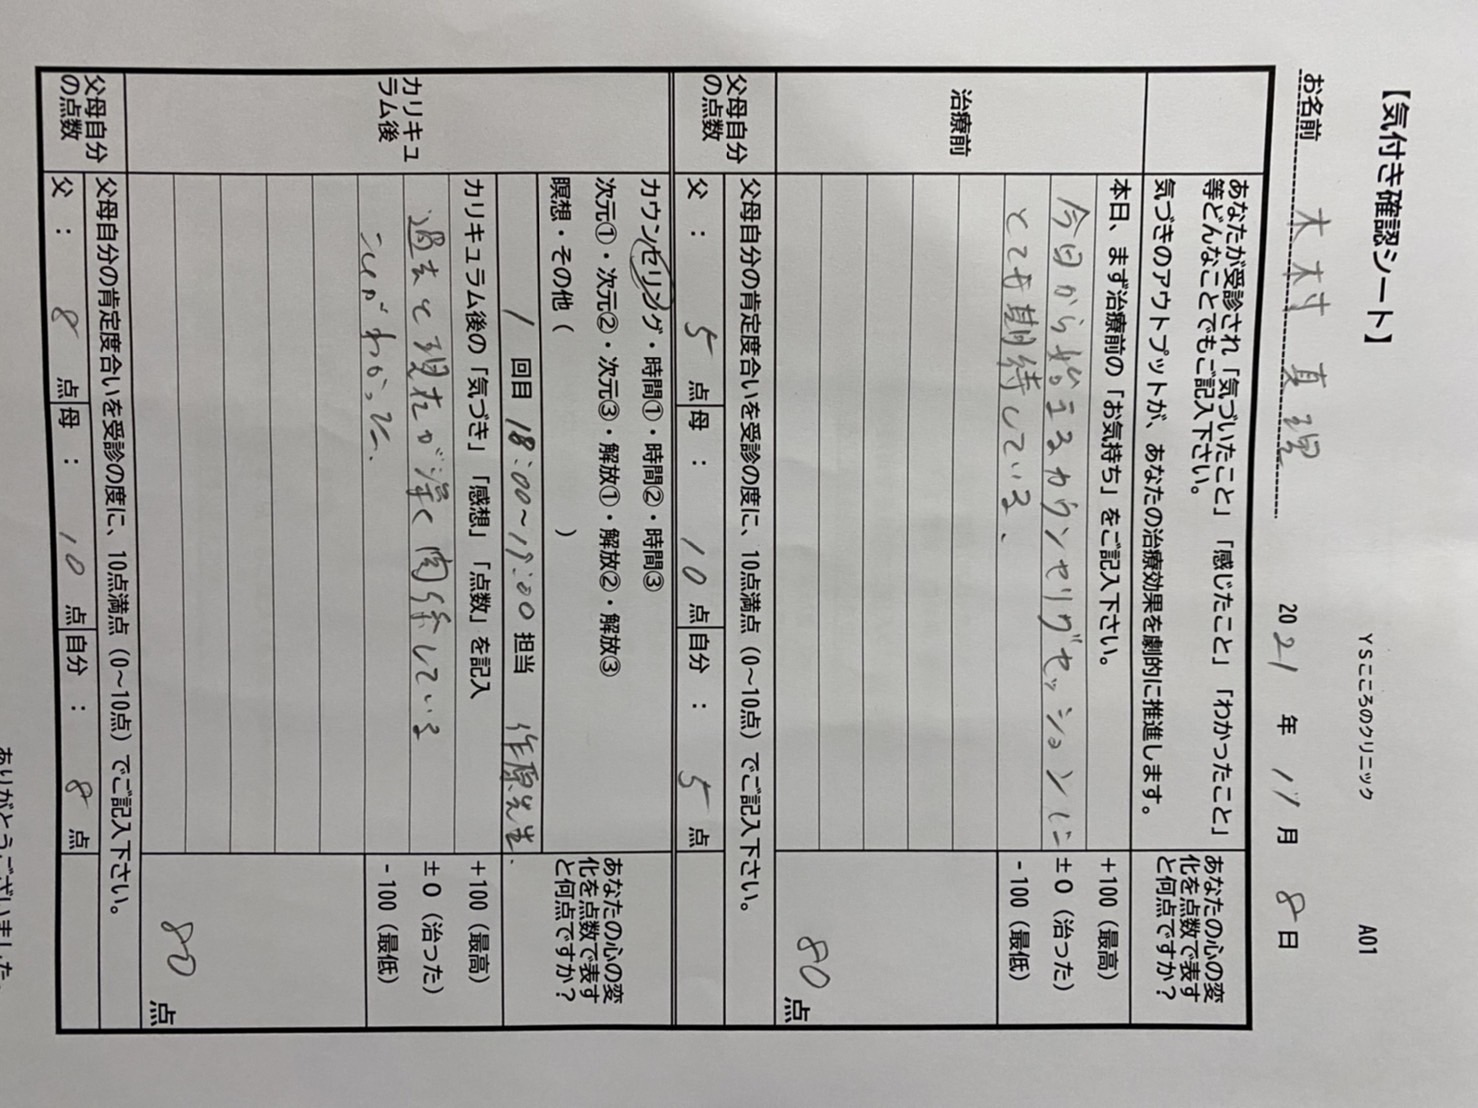 【気付き確認シート】
YSこころのクリニック A01
お名前 木村 真理 2021年 11月 8日
あなたが受診され「気づいたこと」「感じたこと」「わかったこと」
等どんなことでもご記入下さい。
気づきのアウトプットが、あなたの治療効果を劇的に推進します。
あなたの心の変
化を点数で表す
と何点ですか？
治療前
本日、まず治療前の「お気持ち」をご記入下さい。
今日から始まるカウンセリグセッションに
とても期待している、
+100（最高）
±0（治った）
-100（最低）
80点
父母自分
の点数
父母自分の肯定度合いを受診の度に、10点満点（0～10点）でご記入下さい。
父： 5 点 母： 10 点 自分： 5 点
カリキュ
ラム後
カウンセリング・時間①・時間②・時間③
次元①・次元②・次元③・解放①・解放②・解放③
瞑想・その他（ ）
1 回目 18:00～19:00 担当 作原先生.
あなたの心の変
化を点数で表す
と何点ですか？
カリキュラム後の「気づき」「感想」「点数」を記入
過去と現在が深く関係している
ことがわかった.
+100（最高）
±0（治った）
-100（最低）
80点
父母自分
の点数
父母自分の肯定度合いを受診の度に、10点満点（0～10点）でご記入下さい。
父： 8 点 母： 10 点 自分： 8 点
ありがとうございました。